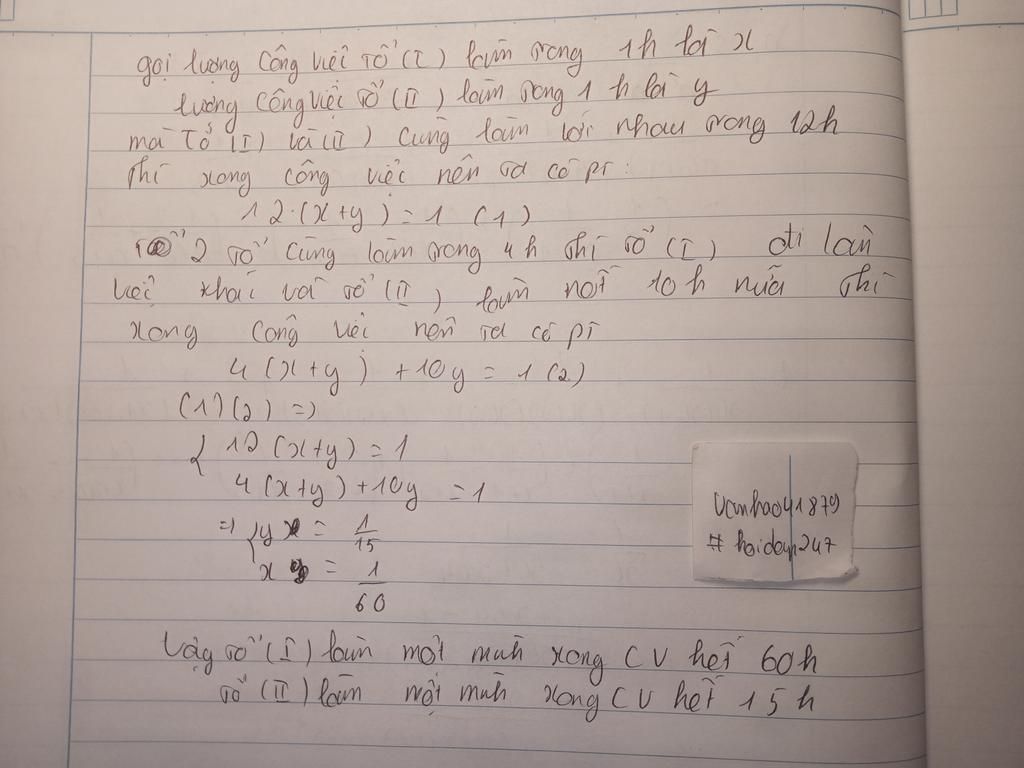 gọi lượng công việc tổ (I) làm trong 1h là x
lượng công việc tổ (II) làm trong 1 h là y
mà Tổ (I) và (II) cùng làm với nhau trong 12h
thì xong công việc nên ta có pt:
12.(x+y) = 1 (1)
2 tổ cùng làm trong 4h thì tổ (I) đi làm
việc khác và tổ (II) làm nốt 10h nữa thì
xong công việc nên ta có pt
4(x+y) + 10y = 1 (2)
(1)(2) =>
{ 12 (x+y) = 1
4(x+y) + 10y = 1
=> { y = 1/15
x = 1/60
Vậy tổ (I) làm một mình xong CV hết 60h
tổ (II) làm một mình xong CV hết 15h
vanhao41879
# hoidap247